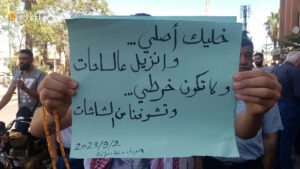 خليك أصلي...
وانزيل عالساحات
ولا تكون خرطي...
وتشرفنا عن لشاشات
2023/9/2